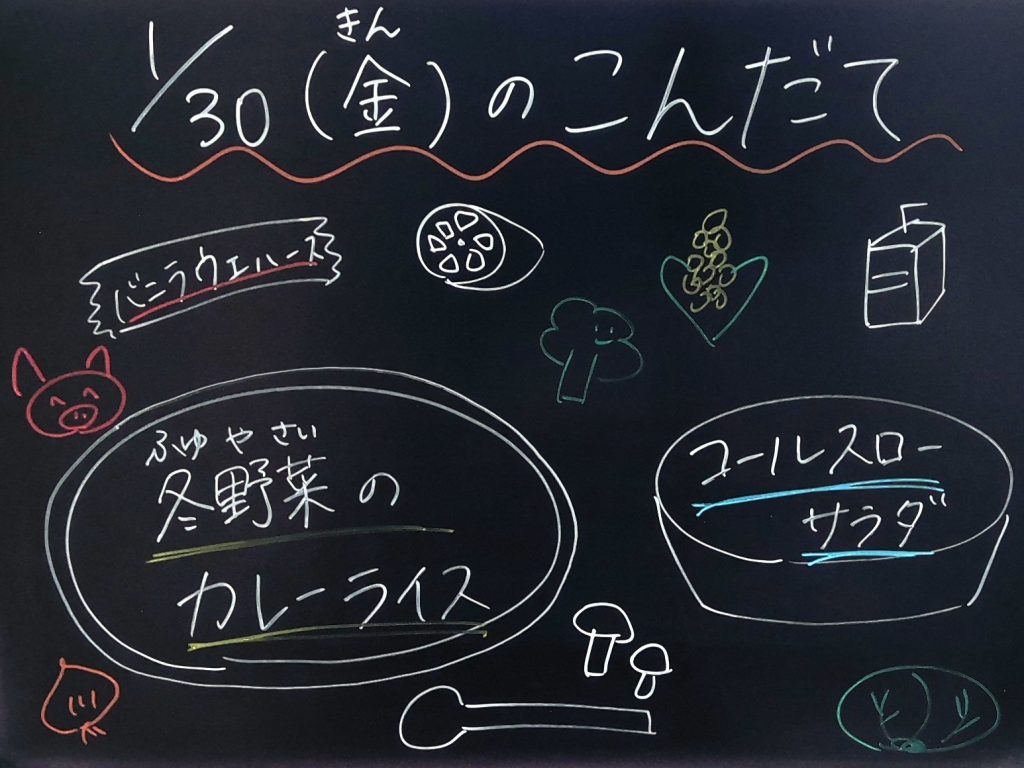 1/30(金)のこんだて
きん
バニラウエハース
ふゆやさい
冬野菜の
カレーライス
コールスロー
サラダ